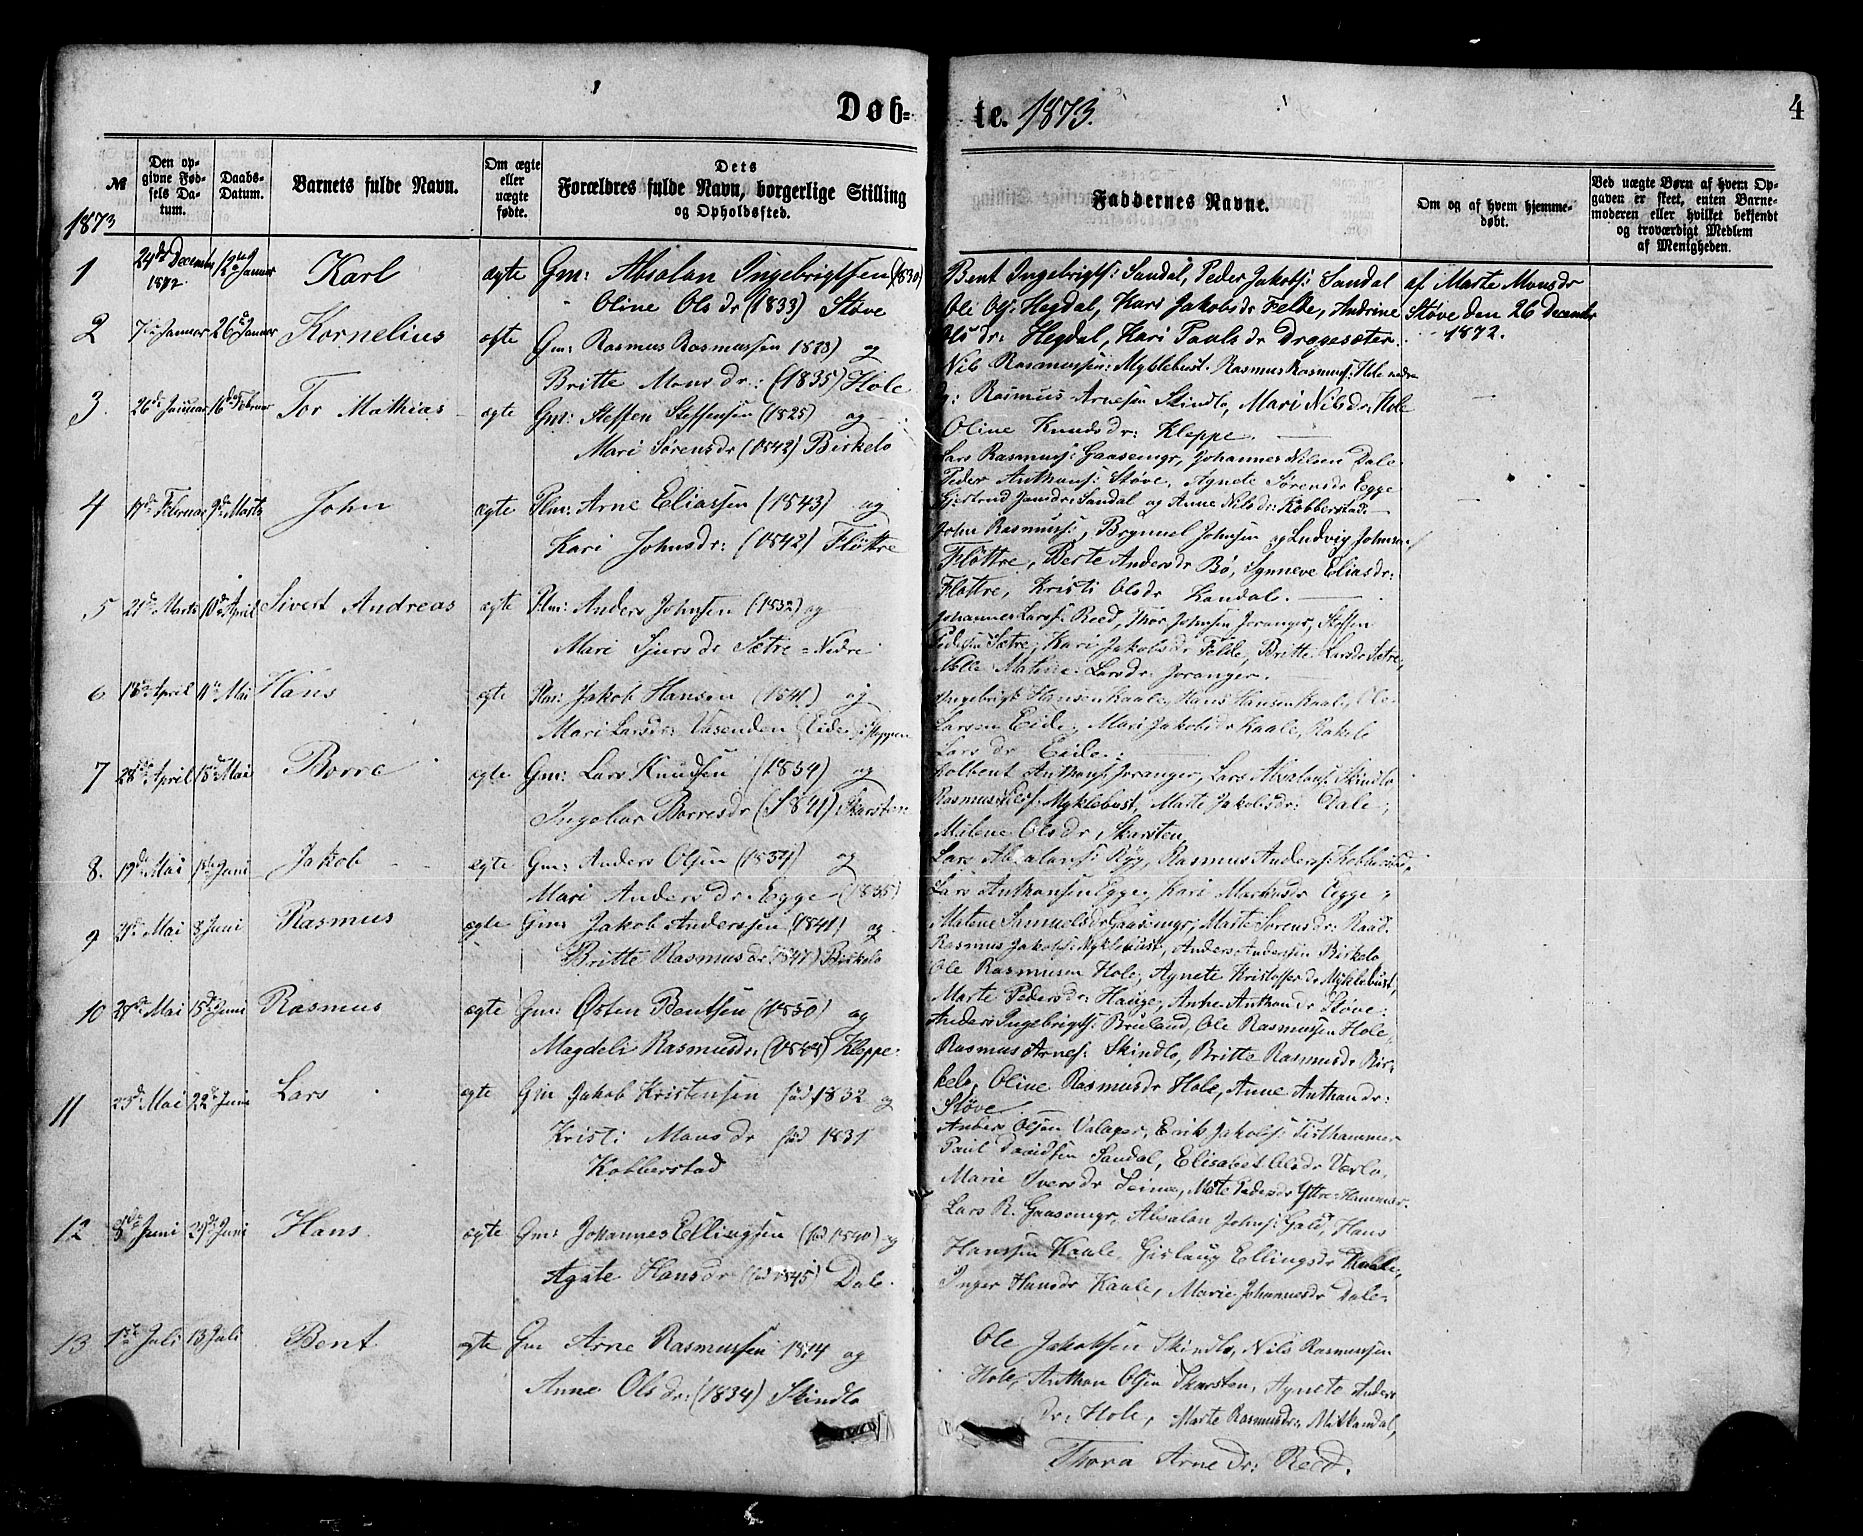 Døb-
te. 1873.
4
№
Den op-
givne Fød-
sels Da-
tum.
Daabs-
Datum.
Barnets fulde Navn.
Om ægte
eller
uægte
fødte.
Dets
Forældres fulde Navn, borgerlige Stilling
og Opholdssted.
Faddernes Navne.
Om og af hvem hjemme-
døbt.
Ved uægte Børn af hvem Op-
gaven er skeet, enten Barne-
moderen eller hvilket bekjendt
og troværdigt Medlem
af Menigheden.
1873
1 24de December 1872 12te Januar Karl ægte Gm: Absalan Ingebrigtsen (1830)
Oline Olsdr (1833) Støve
Bent Ingebrigts: Sandal, Peder Jakobs: Sandal
Ole Ols: Hegdal, Kari Jakobsdr Felde, Andrine
Olsdr: Hegdal, Kari Paulsdr Dragesæter.
af Marte Monsdr
Støve den 26 December
1872.
2 7de Januar 26de Januar Kornelius ægte Gm: Rasmus Rasmussen og
Britte Monsdr: (1835) Hole
Nils Rasmussen: Myklebust. Rasmus Rasmuss: Hole nedre
Rasmus Arnesen Skindlo, Mari Nilsdr: Hole
Oline Knudsdr: Kleppe.
3. 26de Januar 16de Februar Tor Mathias ægte Gm: Steffen Steffensen (1825) og
Mari Sørensdr (1842) Birkelo
Lars Rasmuss: Gaasemyr, Johannes Nilsen Dale
Peder Anthons: Støve, Agnete Sørensdr Egge
Gjertrud Jonsdr: Sandal og Anne Nilsdr: Kobberstad.
4 17de Februar 9de Marts John ægte Plm: Arne Eliassen (1843) og
Kari Johnsdr: (1842) Fløttre
John Rasmuss:, Brynnel Johnsen og Ludvig Johnsen
Fløttre, Berte Andersdr Bø, Synneve Eliasdr:
Fløttre, Kristi Olsdr Kandal.
5 21de Marts 10de April Sivert Andreas ægte Plm: Anders Johnsen (1832) og
Mari Sjursdr Sætre = Nedre
Johannes Larss: Reed, Thor Johnsen Joranger, Steffen
Pedersen Sætre, Kari Jakobsdr Felde, Britte Larsdr Sætre,
Matene Larsdr: Joranger.
6 18de April 11te Mai Hans ægte Plm: Jakob Hansen (1841) og
Mari Larsdr: Vasenden (Eide)
Ingebrigt Hansen Kaale, Hans Hansen Kaale, Ole
Larsen Eide, Mari Jakobsdr Kaale, Rakele
Larsdr Eide.
7 28de April 18de Mai Borre ægte Gm: Lars Knudsen (1834) og
Ingebor Borresdr (1841) Skarsten
Kolbent Anthons: Joranger, Lars Absalons: Skindlo
Rasmus Nilss: Myklebust, Marte Jakobsdr: Dale,
Milene Olsdr, Skarsten,
8. 19de Mai 1ste Juni Jakob ægte Gm: Anders Olsen (1834) og
Mari Andersdr: Egge (1835)
Lars Absalons: Ryg, Rasmus Anders: Kobberstad,
Lars Anthonsen Egge, Kari Egge,
Matene Samuelsdr Gaasemyr, Marte Sørensdr: Raad.
9 Mai 8 Juni Rasmus ægte Gm: Jakob Anderssen (1841) og
Britte Rasmusdr (1847) Birkelo
Rasmus Jakobs: Myklebust, Anders Andersen Birkelo
Ole Rasmusen Hole, Agnete Kristoffersdr Myklebust,
Marte Pedersdr: Hauge, Anne Anthondr Støve.
10 Mai 15de Juni Rasmus ægte Gm: Østen Bentsen (1850) og
Magdeli Rasmusdr: (1844) Kleppe.
Anders Ingebrigts: Bruland, Ole Rasmussen Hole,
Rasmus Arnes: Skindlo, Britte Rasmusdr Bir-
kelo, Oline Rasmusdr Hole, Anne Anthondr:
Støve
11 23de Mai 22de Juni Lars ægte Gm Jakob Kristensen fød 1832 og
Kristi Monsdr fød 1831
Kobberstad
Anders Olsen Valager, Erik Jakobs: Fisthammer
Paul Davidsen Sandal, Elisabet Olsdr
Marie Iversdr Seime, Mete Pedersdr Ytre-Hammer.
12 8de Juni 29de Juni Hans ægte Gm: Johannes Ellingsen (fød 1840) og
Agate Hansdr (fød 1845) Dale.
Lars R. Gaasemyr, Absalan Johns: Gald, Hans
Hanssen Kaale, Gjerlaug Ellingsdr Kaale,
Inger Hansdr Kaale, Marie Johannesdr Dale
13 1ste Juli 13 Juli Bent ægte Gm Arne Rasmussen og
Anne Olsdr: (1834) Skindlo
Ole Jakobsen Skindlo, Nils Rasmussen
Hole, Anthon Olsen Skarsten, Agnete Anders
dr: Hole, Marte Rasmusdr: Mitkandal,
Thora Arnedr: Reed.